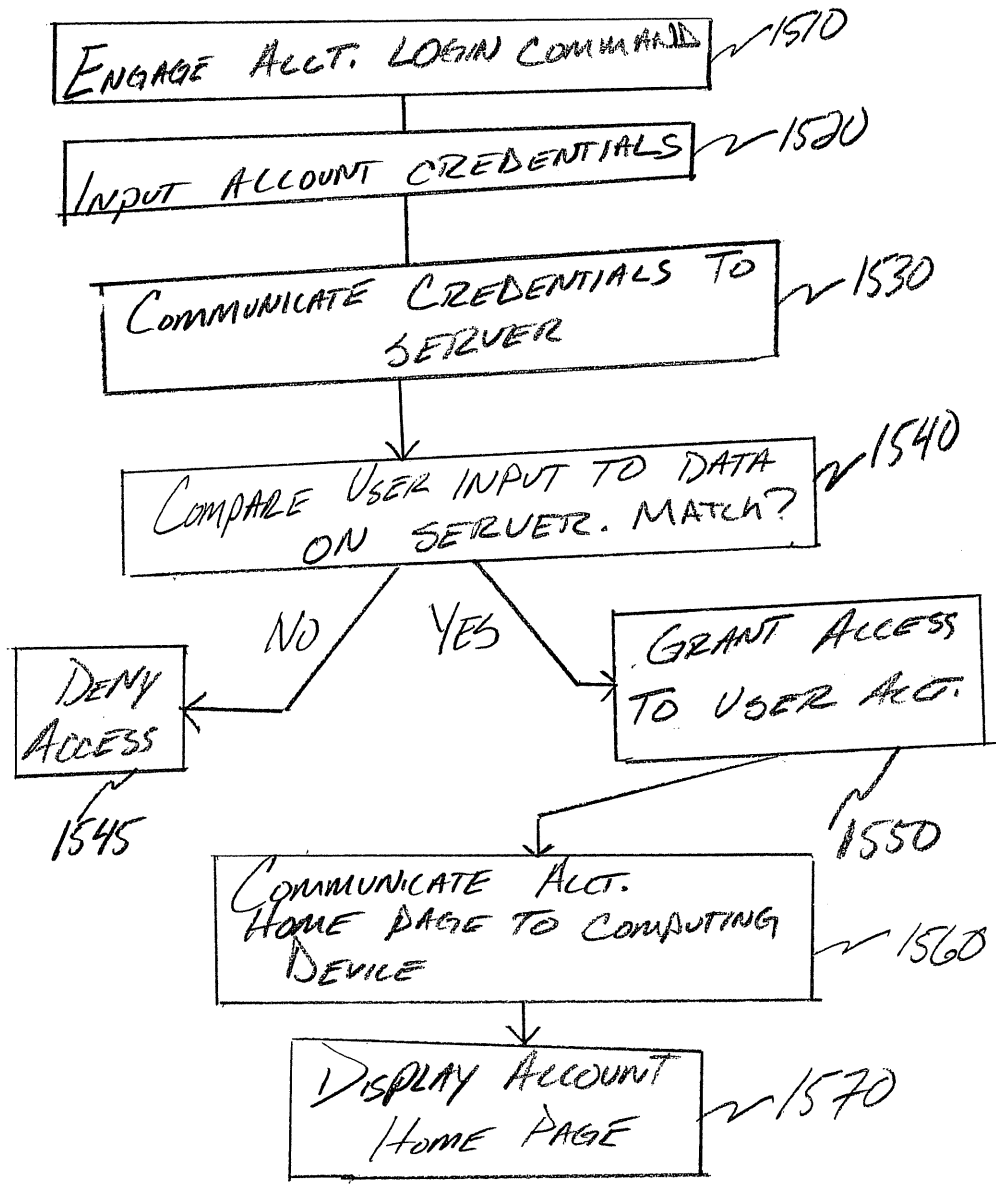 ENGAGE ACCT. LOGIN COMMAND
1510
INPUT ACCOUNT CREDENTIALS
1520
COMMUNICATE CREDENTIALS TO
SERVER
1530
COMPARE USER INPUT TO DATA
ON SERVER. MATCH?
1540
NO
YES
DENY
ACCESS
1545
GRANT ACCESS
TO USER ACCT.
1550
COMMUNICATE ACCT.
HOME PAGE TO COMPUTING
DEVICE
1560
DISPLAY ACCOUNT
HOME PAGE
1570